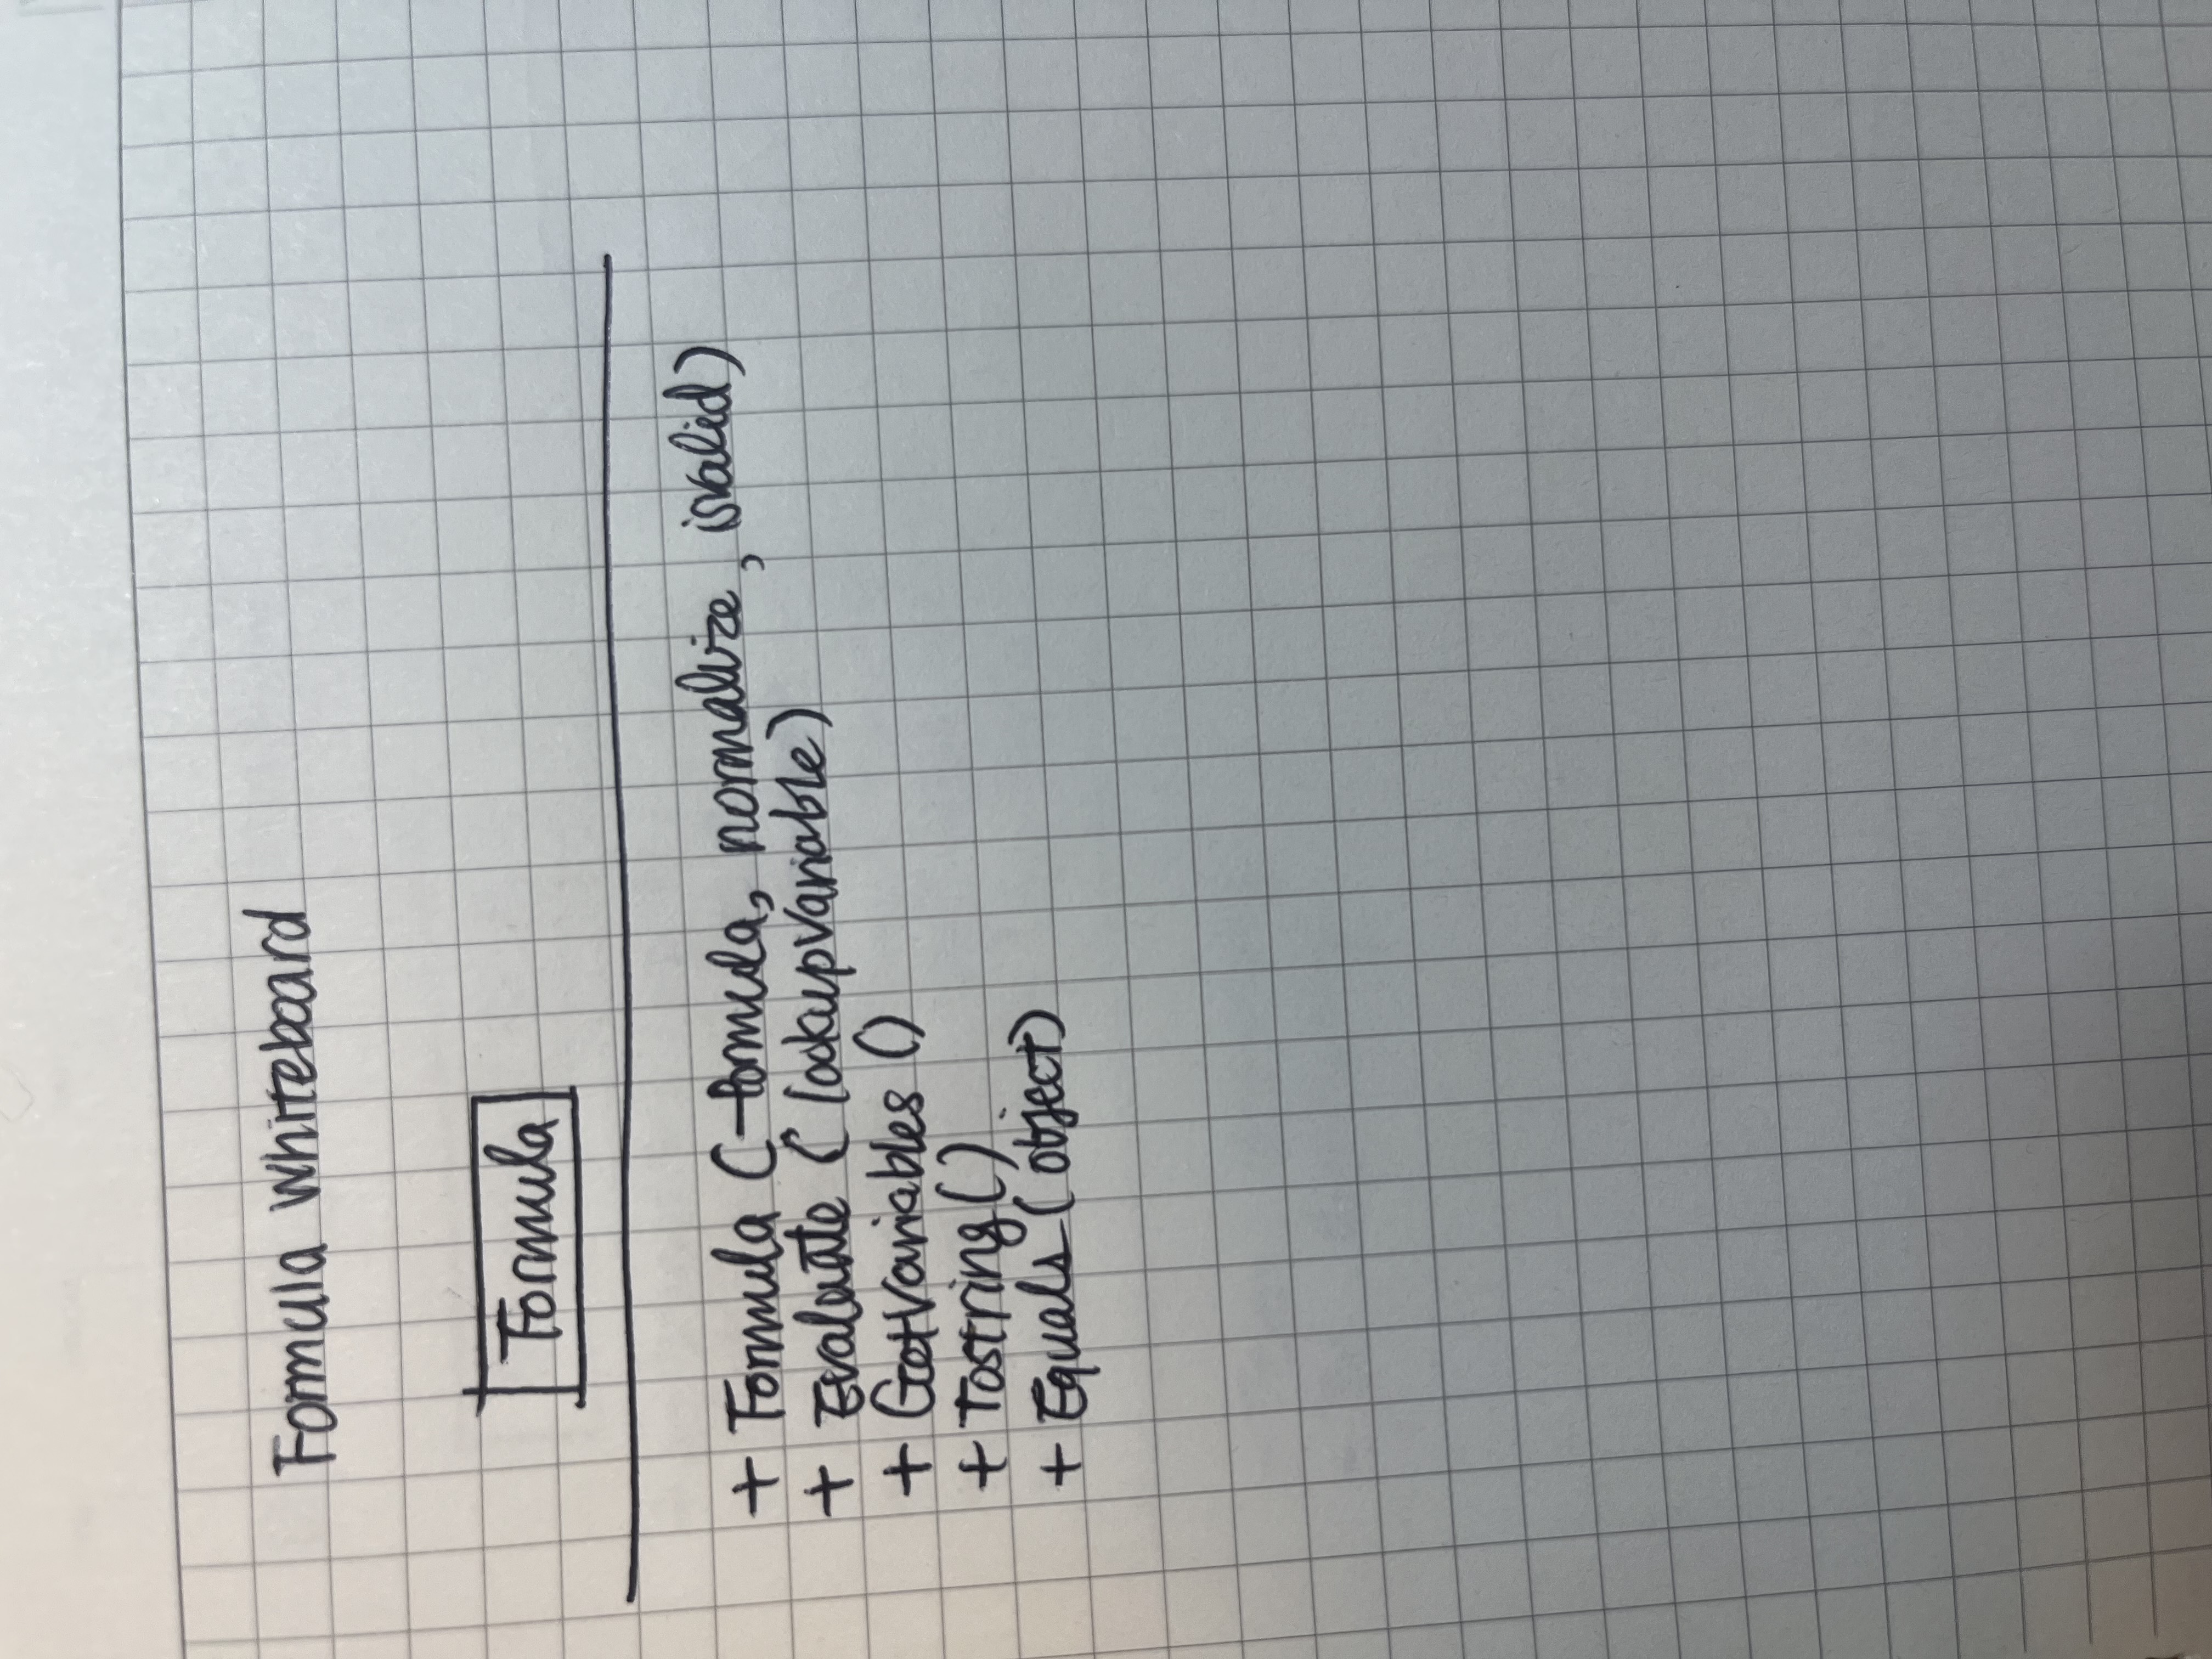 Formula Whiteboard
Formula
+ Formula (formula, normalize, isvalid)
+ Evaluate (lookupVariable)
+ GetVariables ()
+ Tostring()
+ Equals (object)